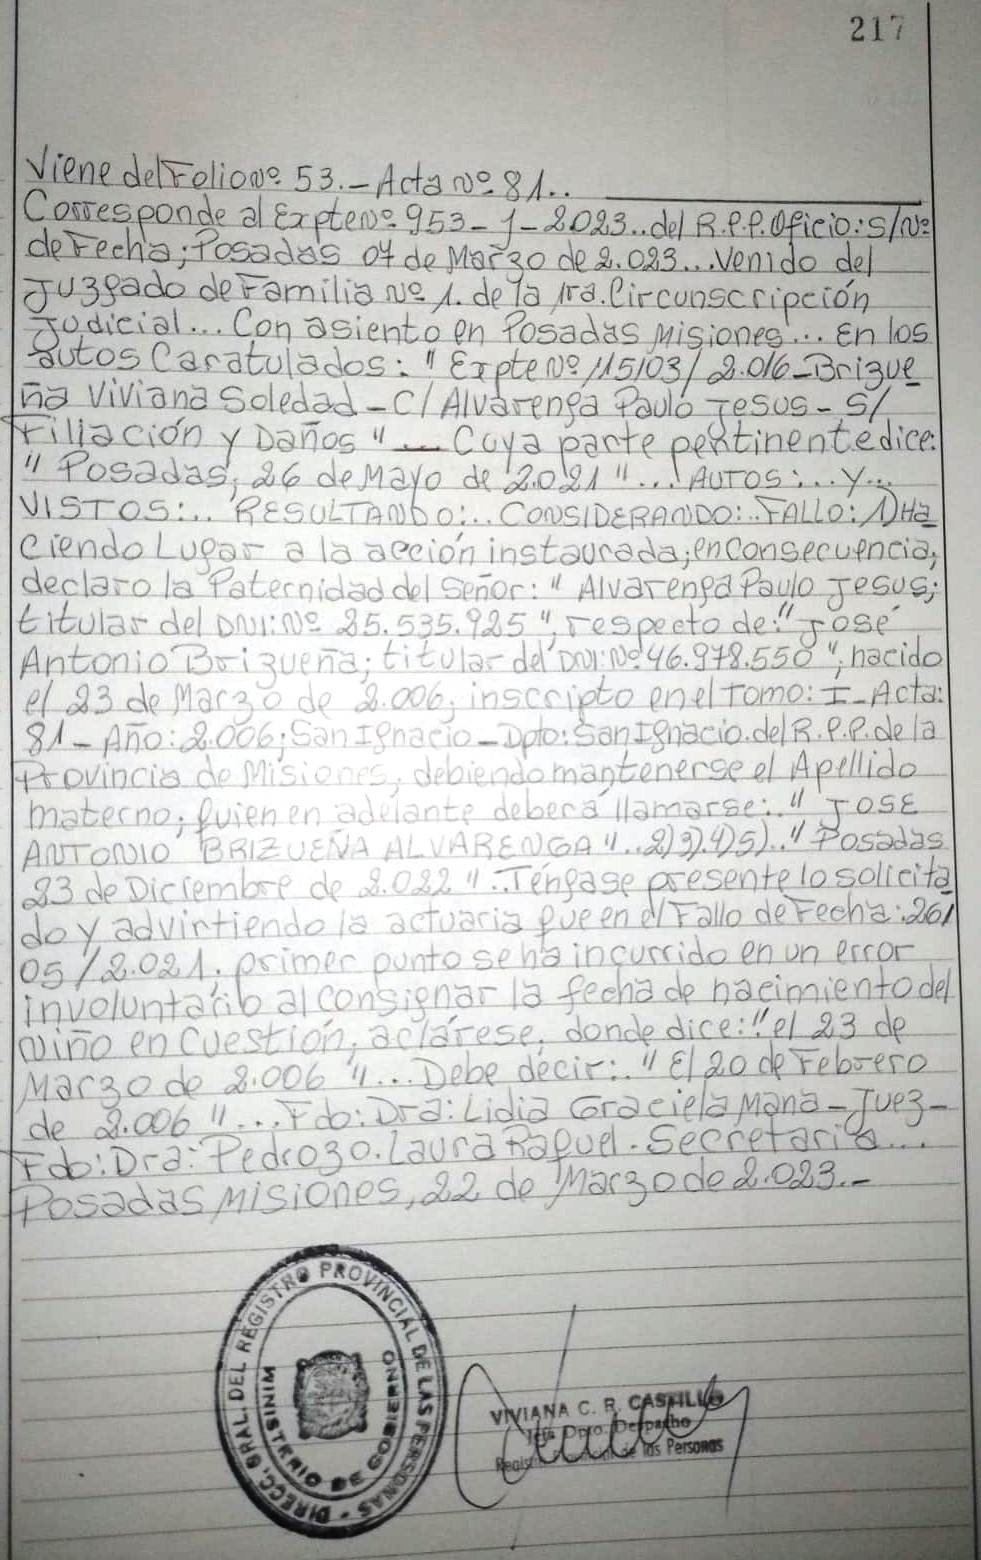 217
Viene del Folio Nº 53.- Acta Nº 81..
Corresponde al Expte Nº 953-J-2023.. del R.P.P. Oficio: S/Nº
de Fecha; Posadas 07 de Marzo de 2.023... Venido del
Juzgado de Familia Nº 1. de la 1ra. Circunscripción
Judicial... Con asiento en Posadas Misiones... En los
autos Caratulados: " Expte Nº 115103/2.016-Brizue
ña Viviana Soledad - C/ Alvarenga Paulo Jesus - S/
Filiación y Daños " ... Cuya parte pertinente dice:
" Posadas, 26 de Mayo de 2.021 "... AUTOS:.. Y...
VISTOS:.. RESULTANDO:.. CONSIDERANDO:. FALLO: 1) Ha
ciendo Lugar a la acción instaurada; en Consecuencia,
declaro la Paternidad del Señor: " Alvarenga Paulo Jesus;
titular del DNI: Nº 25.535.925 ", respecto de: " José
Antonio Brizueña; titular del DNI: Nº 46.978.550 "; nacido
el 23 de Marzo de 2.006; inscripto en el Tomo: I - Acta:
81 - Año: 2.006; San Ignacio - Dpto: San Ignacio. del R.P.P. de la
Provincia de Misiones, debiendo mantenerse el Apellido
materno; quien en adelante deberá llamarse:. " JOSE
ANTONIO BRIZUEÑA ALVARENGA "..2)3).4)5).." Posadas
23 de Diciembre de 2.022 ".. Téngase presente lo solicita
do y, advirtiendo la actuaria que en el Fallo de Fecha: 26/
05/2.021, primer punto se ha incurrido en un error
involuntario al consignar la fecha de nacimiento del
niño en cuestión, aclárese, donde dice: " el 23 de
Marzo de 2.006 "... Debe decir:. " El 20 de Febrero
de 2.006 "... Fdo: Dra: Lidia Graciela Mana - Juez -
Fdo: Dra: Pedrozo. Laura Raquel. Secretaria...
Posadas Misiones, 22 de Marzo de 2.023.-
DIRECC. GRAL. DEL REGISTRO PROVINCIAL DE LAS PERSONAS -
MINISTERIO DE GOBIERNO
VIVIANA C. R. CASTILLO
Jefe Dpto. Despacho
de las Personas